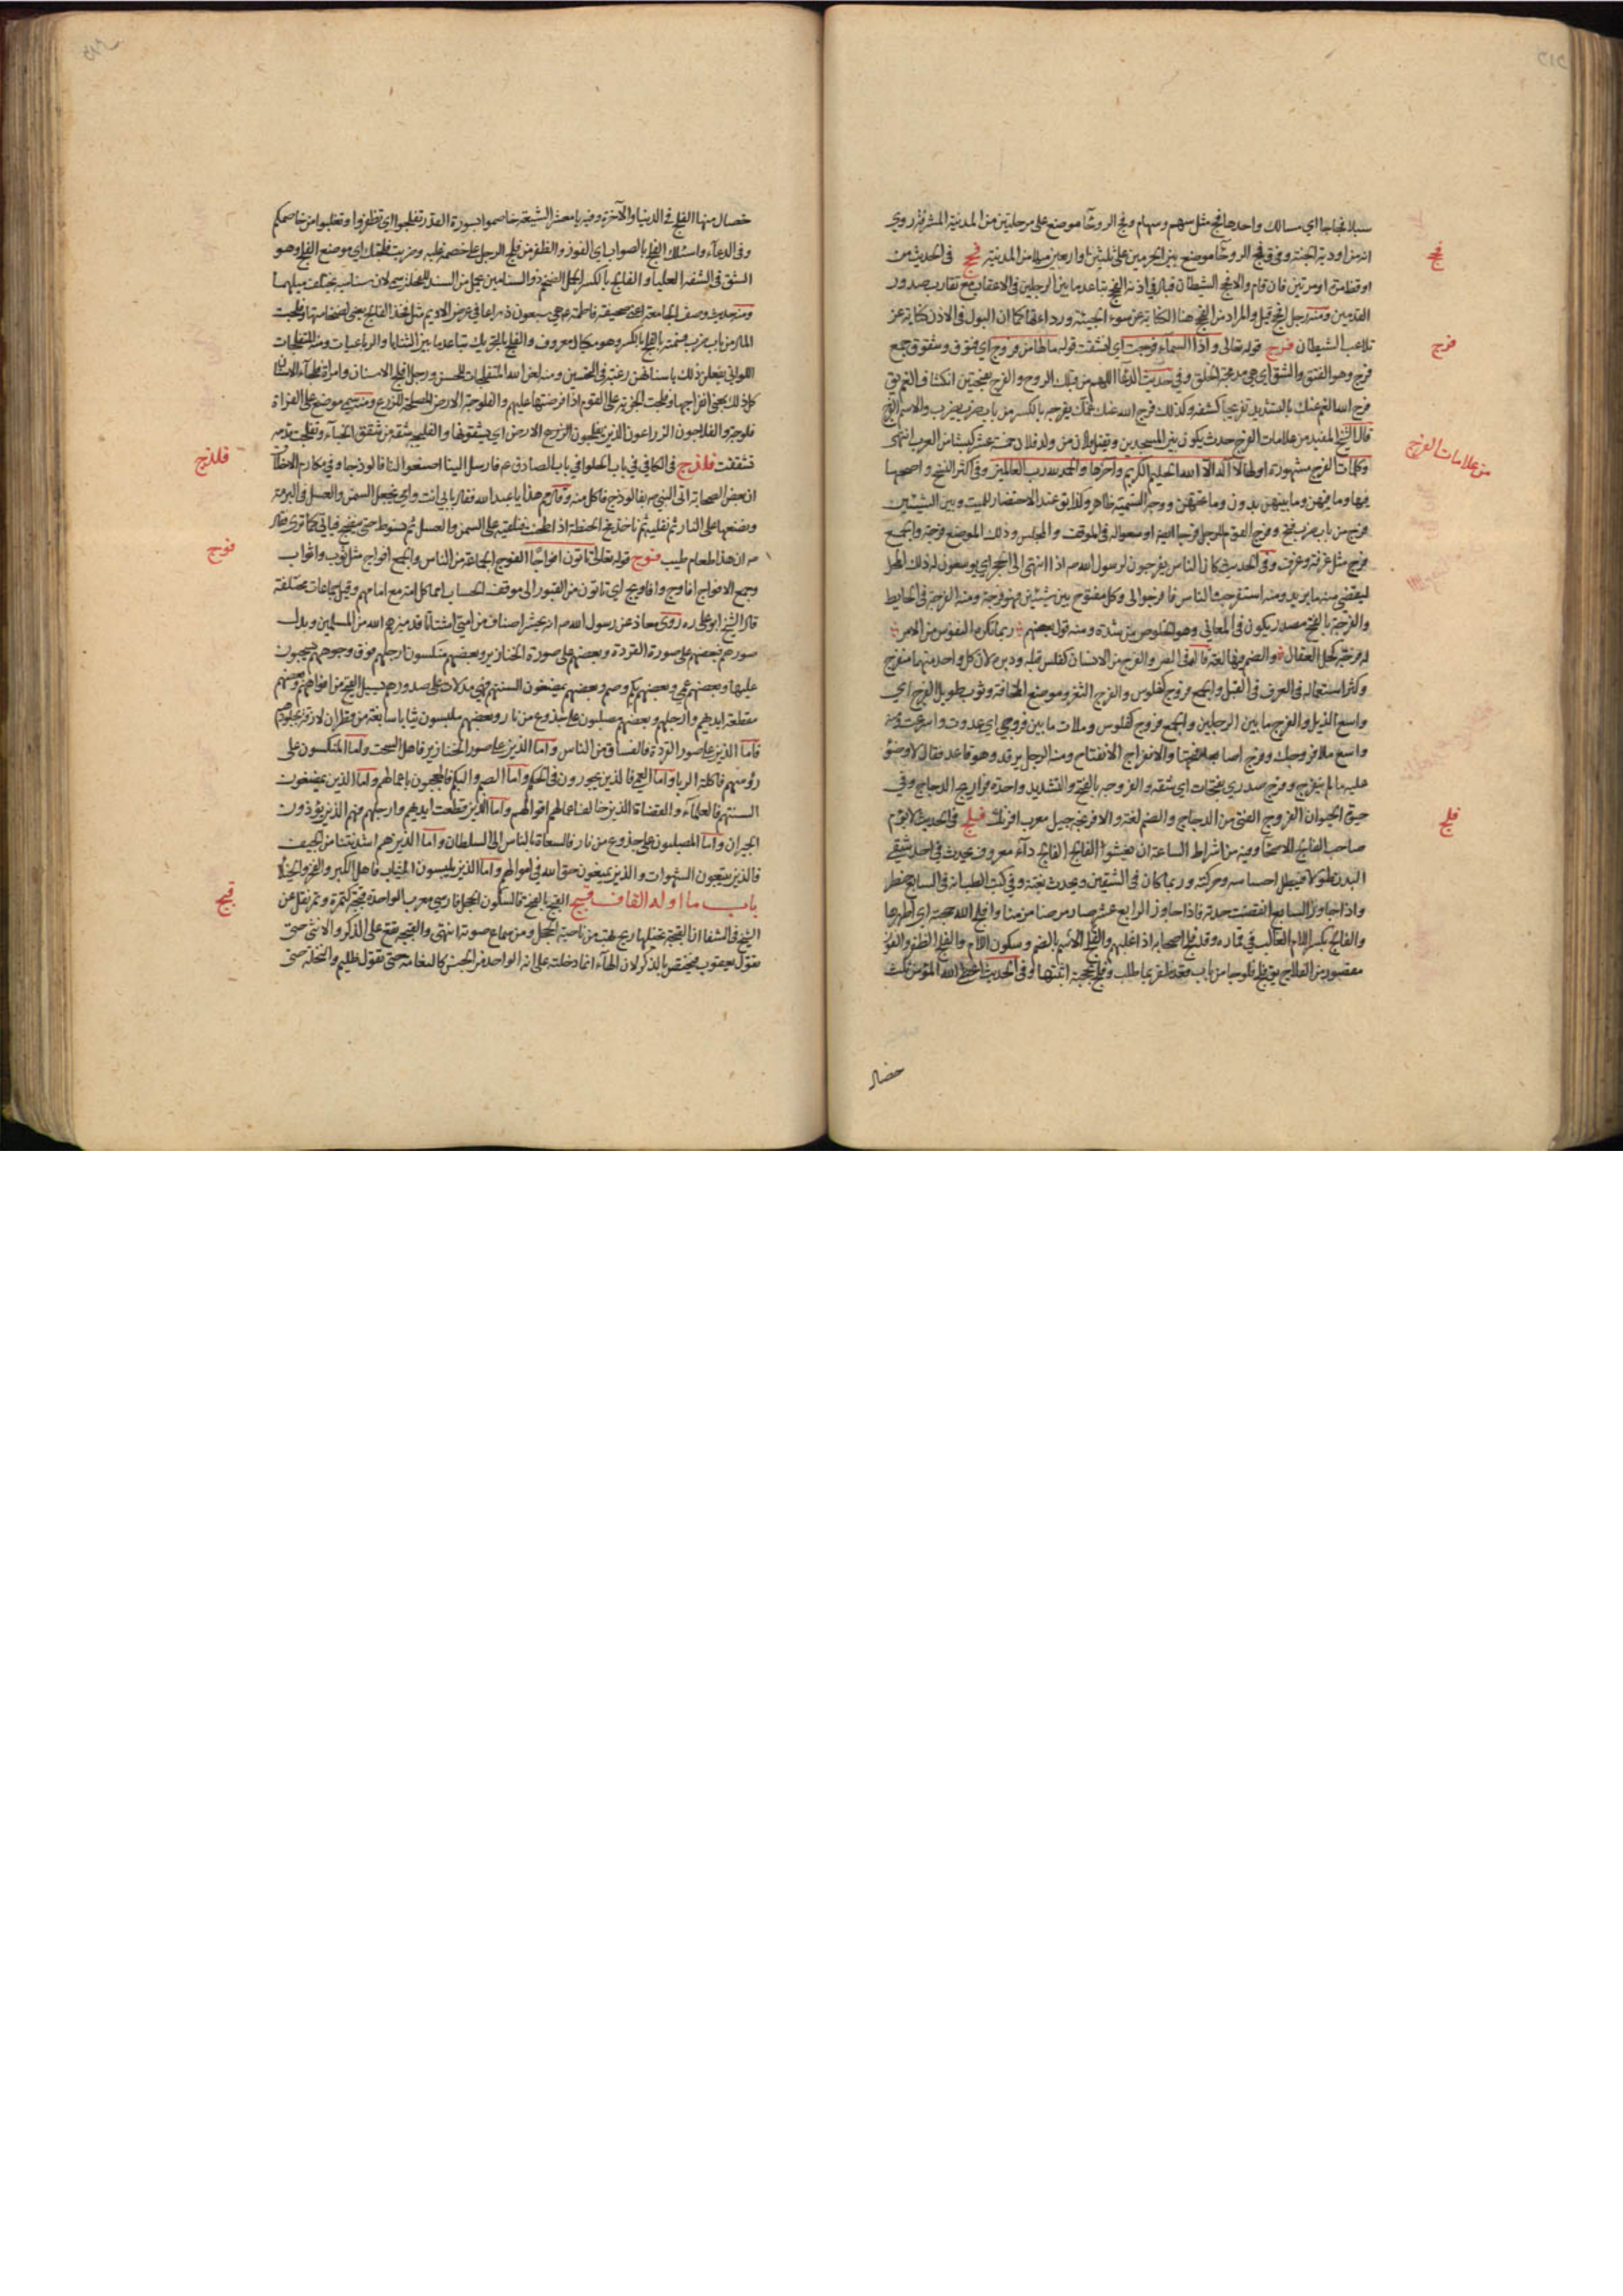 سبلا فجاجا اي مسالك واحدها فج مثل سهم وسهام وفج الروحآ موضع على مرحلتين من المدينة المشرفة روي
انه من اودية الجنة وفي ق فج الروحآ موضع بين الحرمين على ثلثين او اربعين ميلا من المدينة فحج في الحديث من
فحج
او مرتين فان قام والا فحج الشيطان فبال في اذنه الفحج تباعد ما بين الرجلين في الاعقاب مع تقارب صدور
القدمين ومنه رجل افحج قيل والمراد من الفحج هنا الكناية عن سوء الهيئة ورداءتها كما ان البول في الاذن كناية عن
تلاعب الشيطان فرج قوله تعالى واذا السماء فرجت اي انشقت قوله مالها من فروج اي فتوق وشقوق جمع
فرج
فرج وهو الفتق والشق وفي حديث الدعآ اللهم من قبلك الروح والفرج
فرج الله الغم عنك بالتشديد تفريجا كشفه وكذلك فرج الله عنك غمك يفرجه بالكسر من باب ضرب والاسم الفرج
قال الشيخ المفيد من علامات الفرج حدث يكون بين المسجدين ويقتل فلان من ولد فلان خمسة عشر كبشا من العرب انتهى
من علامات الفرج
وكلمات الفرج مشهورة اولها لا اله الا الله الحليم الكريم واخرها والحمد لله رب العالمين وفي اكثر النسخ
فيها وما فيهن وما بينهن بدون وما تحتهن ووجه التسمية ظاهر عند الاحتضار للميت وبين الشيئين
فرج من باب ضرب فتح وفرج القوم للرجل فرجا ايضا اوسعوا له في الموقف والمجلس وذلك الموضع فرجة والجمع
فرج مثل غرفة وغرف وفي الحديث كان الناس يفرجون لرسول الله ص اذا انتهى الى الحجر اي يوسعون له ذلك المحل
ليقضي منه ما يريد ومنه استفرجت الناس فافرجوا لي وكل مفتوح بين شيئين فهو فرجة ومنه الفرجة في الحايط
والفرجة بالفتح مصدر يكون في المعاني وهو الخلوص من شدة ومنه قول بعضهم ربما تكره النفوس من الامر
له فرجة كحل العقال والضم فيها لغة والفرج من الانسان كفلس قبله ودبره لان كل واحد منهما منفرج
وكثر استعماله في العرف في القبل والجمع فروج كفلوس والفرج الثغر وموضع المخافة وثوب طويل الفرج اي
واسع الذيل والفرج ما بين الرجلين والجمع فروج كفلوس وملات ما بين فروجي اي عدوت واسرعت ومنه
واسع ملا فروجك وفرج اصابعه فتحها والانفراج الانفتاح ومنه الرجل يرقد وهو قاعد فقال لا وضوء
عليه ما لم ينفرج وفرج صدري بفتحات اي شقه والفروجة بالفتح والتشديد واحدة فراريج الدجاج وفي
حيوة الحيوان الفروج الفتي من الدجاج والضم لغة والافرنجة جيل معرب افرنك فلج في الحديث لا يؤم
فلج
صاحب الفالج الاصحآ وفيه من اشراط الساعة ان يفشوا الفالج الفالج دآء معروف يحدث في احد شقي
البدن طولا فيبطل احساسه وحركته وربما كان في الشقين ويحدث بغتة وفي كتب الطب انه في السابع خطر
واذا جاوز السابع انقضت حدته فاذا جاوز الرابع عشر صار مرضا مزمنا وافلج الله حجته اي اظهرها
والفالج بكسر اللام الغالب في قماره وقد فلج اصحابه اذا غلبهم والفلج الاسم بالضم وسكون اللام والفلج الظفر والفوز
فلج فلوجا من باب قعد ظفر بما طلب وفلج بحجته اثبتها وفي الحديث اعطي الله المؤمن ثلث
خصال
خصال منها الفلج في الدنيا والآخرة وفيه يا معشر الشيعة خاصموا بسورة القدر تفلجوا اي تظفروا وتغلبوا من خاصمكم
وفي الدعآء واسئلك الفلج بالصواب اي الفوز والظفر من فلج الرجل على خصمه غلبه اي موضع الفلج وهو
الشق في الشفة العليا والفالج بالكسر الجمل الضخم ذو السنامين يحمل من السند للفحل سمي به لان سناميه يختلف ميلهما
ومنه حديث وصف الجامعة اعني صحيفة فاطمة ع هي سبعون ذراعا في عرض الاديم مثل فخذ الفالج يعني لضخامتها وفلجت
المال من باب ضرب قسمته بالفلج بالكسر وهو مكيال معروف والفلج بالتحريك تباعد ما بين الثنايا والرباعيات ومنه المتفلجات
اللواتي يفعلن ذلك باسنانهن رغبة في التحسين ومنه لعن الله المتفلجات للحسن ورجل افلج الاسنان وامراة فلجآء الاسنان
وفلجت الجزية على القوم اذا فرضتها عليهم والفلوجة الارض المصلحة للزرع ومنه سمي موضع على الفرات
فلوجة والفلاجون الزراعون الذين يفلجون الارض اي يشقونها والفليجة شقة من شقق الخبآء وتفلجت قدمه
تشققت فلذج في الكافي في باب الحلوا في باب الصادق ع فارسل الينا اصنعوا لنا فالوذجا وفي مكارم الاخلاق
فلذج
ان بعض الصحابة اتى النبي ص بفالوذج فاكل منه وقال مم هذا يا عبد الله فقال بابي انت وامي نجعل السمن والعسل في البرمة
ونضعها على النار ثم نقليه ثم ناخذ مخ الحنطة اذا طحنت فنلقيه على السمن والعسل ثم نسوطه حتى ينضج فياتي كما ترى فقال
ص ان هذا طعام طيب فوج قوله تعالى فتاتون افواجا الفوج الجماعة من الناس والجمع افواج مثل ثوب واثواب
فوج
وجمع الافواج افاوج وافاويج اي تاتون من القبور الى موقف الحساب امما كل امة مع امامهم وقيل جماعات مختلفة
قال الشيخ ابو على ره روى معاذ عن رسول الله ص انه يحشر اصناف من امتي اشتاتا قد ميزهم الله من المسلمين وبدل
صورهم فبعضهم على صورة القردة وبعضهم على صورة الخنازير وبعضهم منكسون ارجلهم فوق وجوههم يسحبون
عليها وبعضهم عمي وبعضهم بكم وصم وبعضهم يمضغون السنتهم فهي مدلاة على صدورهم يسيل القيح من افواههم وبعضهم
مقطعة ايديهم وارجلهم وبعضهم مصلبون على جذوع من نار وبعضهم يلبسون ثيابا سابغة من قطران لازقة بجلودهم
فاما الذين على صور القردة فالفساق من الناس واما الذين على صور الخنازير فاهل السحت واما المنكسون على
رؤسهم فاكلة الربا واما العمي فالذين يجورون في الحكم واما الصم والبكم فالمعجبون باعمالهم واما الذين يمضغون
السنتهم فالعلمآء والقضاة الذين خالف اعمالهم اقوالهم واما الذين قطعت ايديهم وارجلهم فهم الذين يؤذون
الجيران واما المصلبون على جذوع من نار فالسعاة بالناس الى السلطان واما الذين هم اشد نتنا من الجيف
فالذين يتبعون الشهوات والذين يمنعون حق الله في اموالهم واما الذين يلبسون الثياب فاهل الكبر والفخر والخيلا
باب ما اوله القاف قبج القبج بالفتح فالسكون الحجل فارسي معرب الواحدة قبجة كتمرة وتمر نقل عن
قبج
الشيخ في الشفا ان القبجة تحبلها ريح تهب من ناحية الحجل ومن سماع صوته انتهى والقبجة تقع على الذكر والانثى حتى
تقول يعقوب فيختص بالذكر لان الهآء انما دخلته على انه الواحد من الجنس كالنعامة حتى تقول ظليم والنحلة حتى